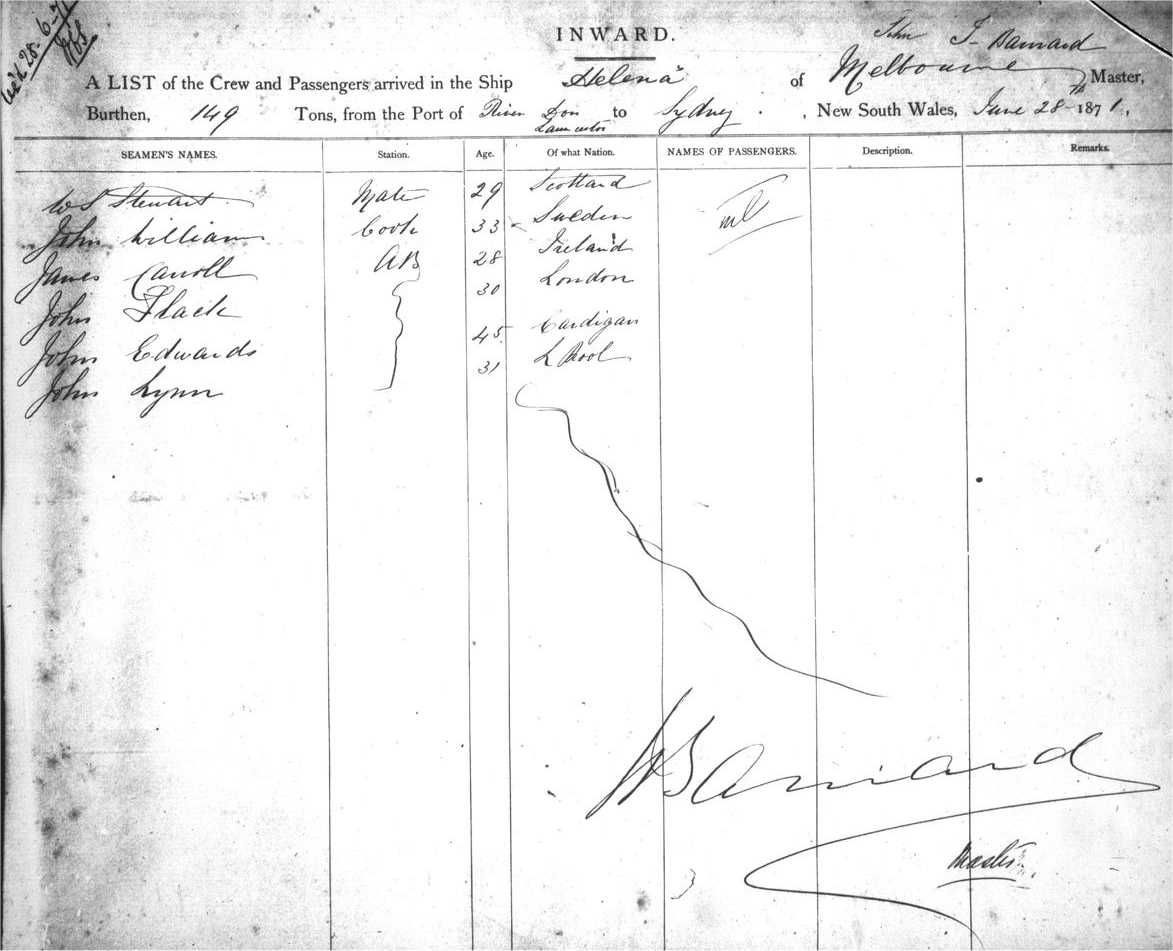 Rec'd 28-6-71
INWARD.
John T Barnard
A LIST of the Crew and Passengers arrived in the Ship "Helena" of Melbourne Master,
Burthen, 149 Tons, from the Port of River Don to Sydney, New South Wales, June 28th 1871,
SEAMEN'S NAMES. Station. Age. Of what Nation. NAMES OF PASSENGERS. Description. Remarks.
Lancaster
W S Stewart Mate 29 Scotland nil
John William Cook 33 Sweden
James Carroll AB 28 Ireland
John Flack 30 London
John Edwards 45 Cardigan
John Lynn 31 L Pool
Barnard
Master